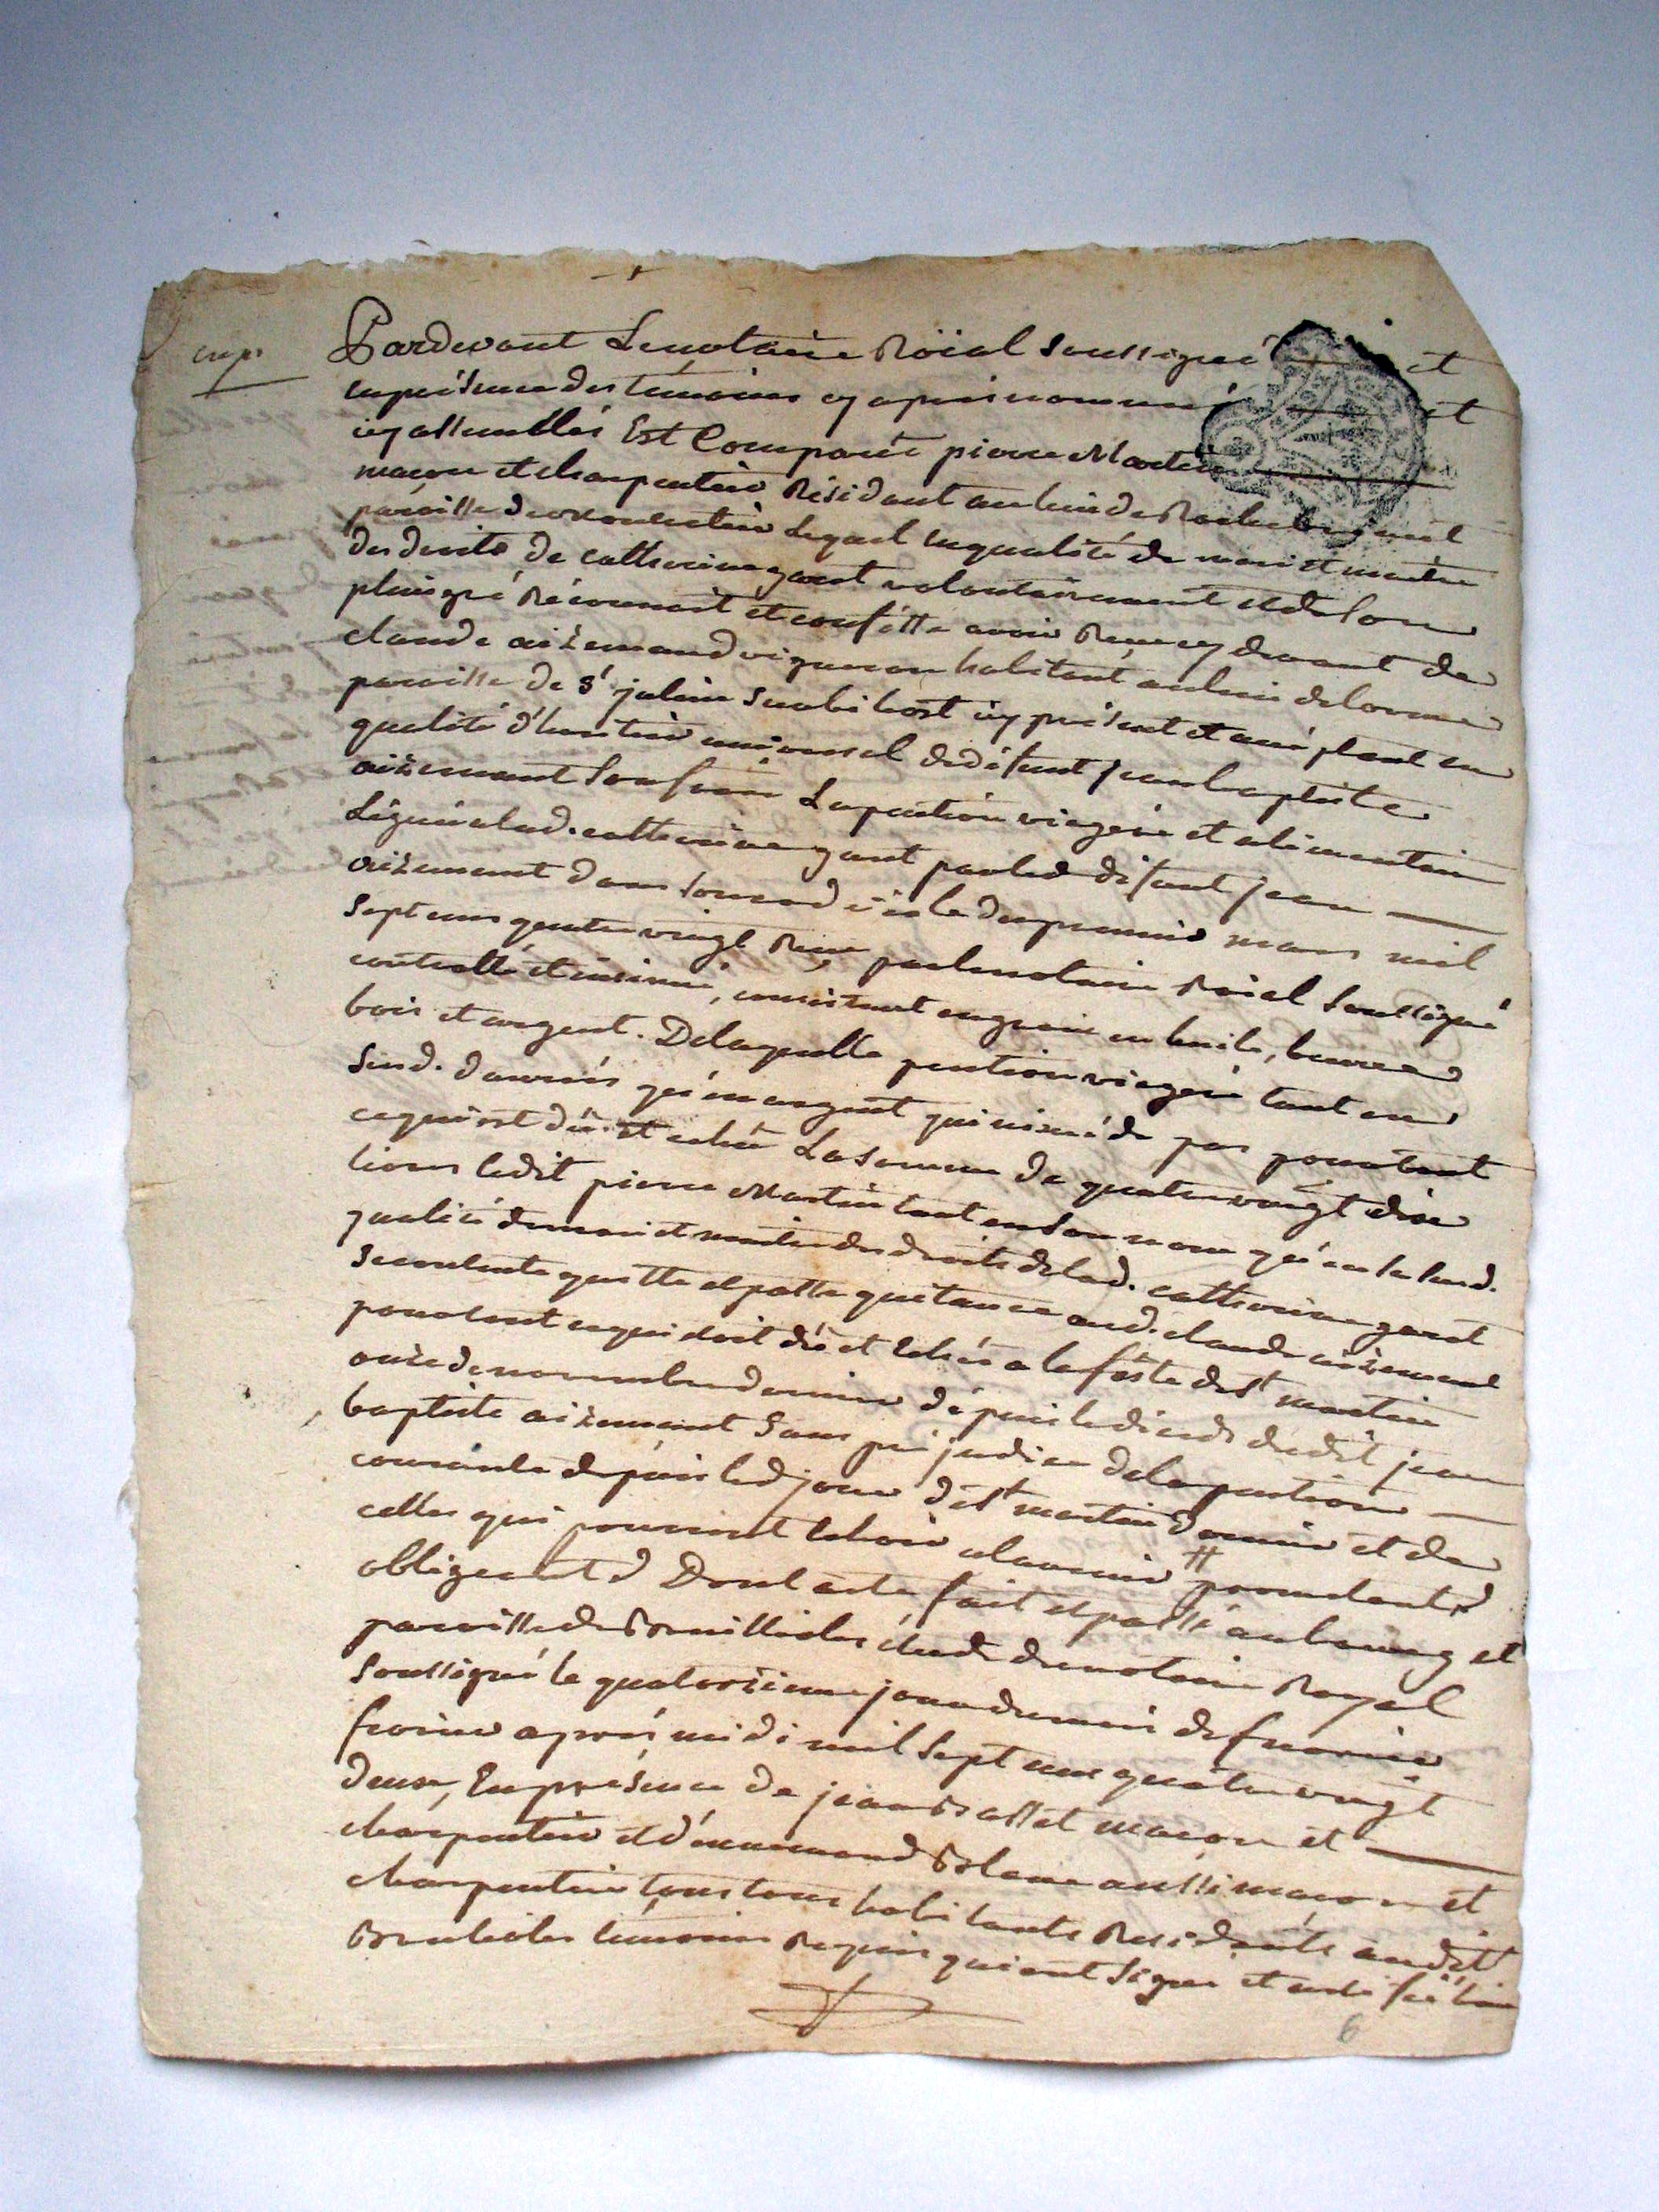 exp.
Pardevant Lenotaire Roïal Soussigné et
enprésence des témoins cy après nommés et
icy assemblés Est Comparû pierre Martin
maçon et charpentier Résidant au lieu de
paroisse de Lequel enqualité de mari et maitre
des droits de catherine garet volontairement et de son
plein gré Réconnoit et confesse avoir Reçu cy devant de
claude aizemand vigneron habitant au lieu delorme
paroisse de St julien icy présent et acceptant en
qualité d'héritier universel dedéfunt jean baptiste
aizemant son frère Lapention viagère et alimentaire
Léguée alad. catherine garet parled. défunt jean
aizemant dans son du premier mars mil
Sept cens quatre vingt Reçu parlenotaire Roïal Soussigné
controllé et insinué, consistant engrain en huile, beurre
bois et argent. Delaquelle pention viagère tant en
Sesd. danrées qu'en argent qui n'excède pas pour tout
cequi est dû et echû La somme de quatre vingt dix
livres ledit pierre Martin tant enson nom qu'en la susd.
qualité demari et maitre des droits delad. catherine garet
Secontente quitte et passe quitance aud. claude aizemant
pour tout cequi étoit dû et Echûs a la fête deSt martin
onze denovembre dernier dépuis ledécès dudit jean
baptiste aizemant Sans préjudice delapention
courante depuis led jour deSt martin dernier et de
celles qui pourront Echoir alavenir # promettants
obligeants Dont acte fait et passé aubourg et
paroisse de étude dunotaire Royal
Soussigné le quatorzieme jour dumois defevrier
fevrier après midi mil Sept cens quatre vingt
deux, Enprésence de jean maçon et
charpentier et d'ennemond aussi maçon et
charpentier tous habitants Residants audit
témoins Requis qui ont Signé et
6